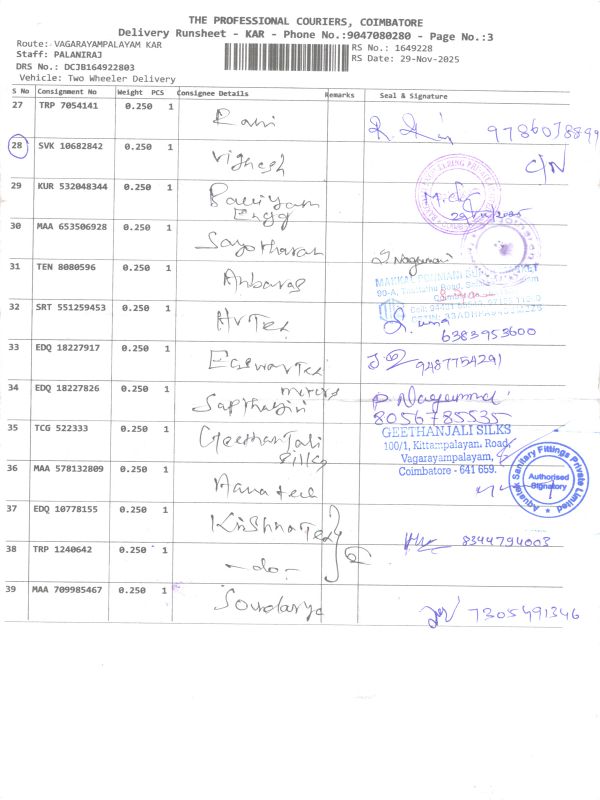 THE PROFESSIONAL COURIERS, COIMBATORE
Delivery Runsheet - KAR - Phone No.:9047080280 - Page No.:3
Route: VAGARAYAMPALAYAM KAR
RS No.: 1649228
Staff: PALANIRAJ
RS Date: 29-Nov-2025
DRS No.: DCJB164922803
Vehicle: Two Wheeler Delivery
S No Consignment No Weight PCS Consignee Details Remarks Seal & Signature
27 TRP 7054141 0.250 1 Rani 9786078899
28 SVK 10682842 0.250 1 Vighesh C/N
29 KUR 532048344 0.250 1
Engg
30 MAA 653506928 0.250 1
31 TEN 8080596 0.250 1 Anbaras
32 SRT 551259453 0.250 1 AVTex
6383953600
33 EDQ 18227917 0.250 1 EaswarTex 9487754291
34 EDQ 18227826 0.250 1
8056785535
35 TCG 522333 0.250 1 Geethanjali
Silks
GEETHANJALI SILKS
100/1, Kittampalayam, Road,
Vagarayampalayam,
Coimbatore - 641 659.
36 MAA 578132809 0.250 1
Aquatek Sanitary Fittings Private Limited
Authorised
Signatory
37 EDQ 10778155 0.250 1 Krishna Tex 8344794003
38 TRP 1240642 0.250 1 -do-
39 MAA 709985467 0.250 1 Soundarya 7305491346